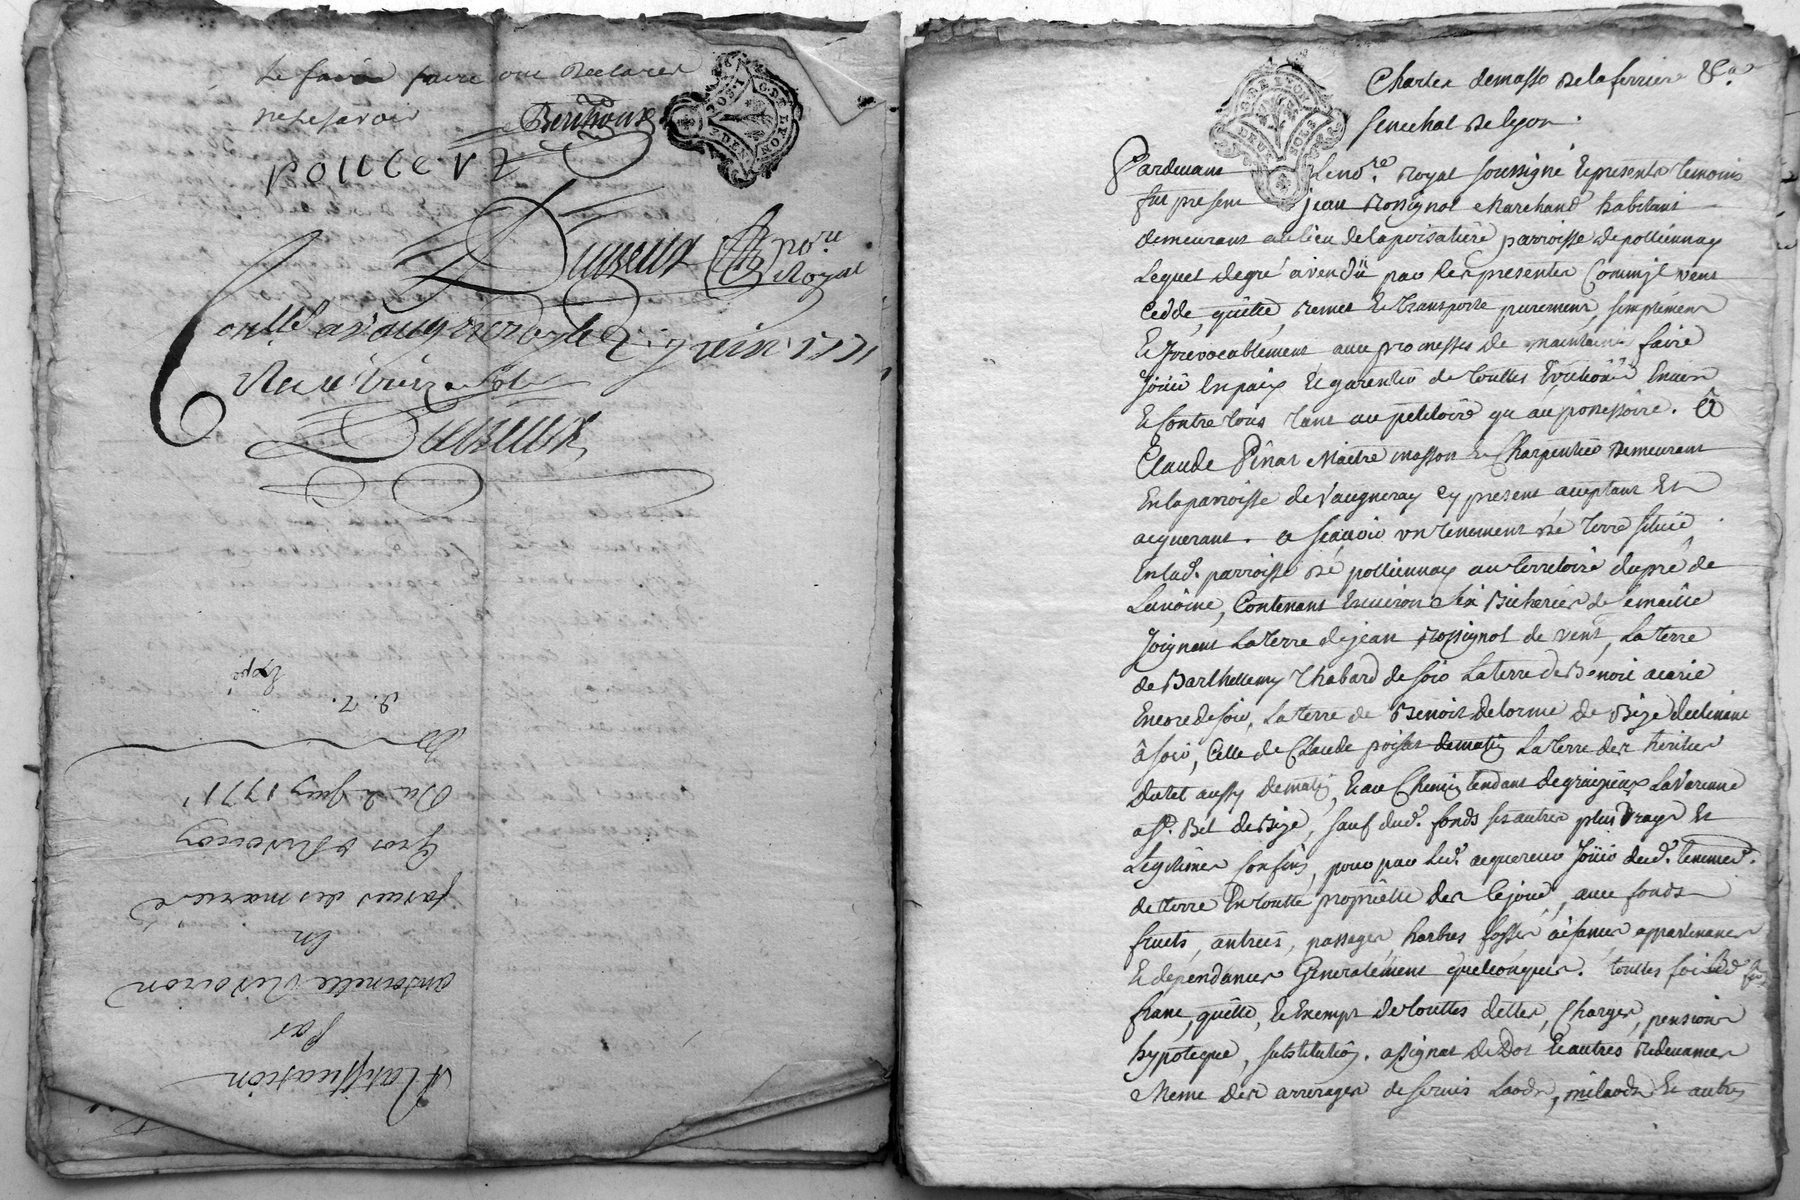 Le faire faire ont Declaré
ne le savoir Berthoux
poncet
Duperret no.re
Royal
Con.lé a vaugneray le 2 juin 1771
Reçu treize sols
Duperret
Ratification
par
antoinette Rivoiron
En
faveur des mariés
Gros & Rivoiron
Du 2 Juin 1771
Exp.é
G. DE LYON
DEUX SOLS
Charles demasso Delaferriere &.a
senechal De Lyon.
Pardevant Le no.re Royal soussigné Et presents temoins
fut present jean Rossignol Marchand habitant
demeurant au lieu de la poisatiere parroisse de pollionnay
Lequel de gré a vendü par Les presentes Comm'il vent
Cedde, quitte, remet Et transporte purement, simplement
Et Irrevocablement avec promesses de maintenir faire
Joüir En paix Et garentir de touttes Evictions Envers
Et Contre tous tant au petitoire qu'au possessoire. à
Claude Pinat Maitre masson Et Charpentier Demeurant
En la parroisse de Vaugneray cy present aceptant Et
acquerant. a sçavoir un tenement de terre situé
En lad. parroisse de pollionnay au territoire du pré de
Lanoine, Contenant Environ six Bicherées de semaille
Joignant La terre de jean Rossignol de vent, La terre
de Barthellemy Thabard de soir La terre de Benoit acarie
Encore de soir, La terre de Benoit Delorme de Bize declinant
à soir, Celle de Claude poizat de matin La terre des heritiers
Duret aussy de matin, Et au Chemin tendant de graizieux La Varenne
a S.t Bel de Bize, sauf dud. fonds ses autres plus vrays Et
Legitimes Confins, pour par Led. acquereur Joüir dud. tenement
de terre En toutte proprietté des ce jour, avec fonds
fruits, antrées, passages harbres fossés aisances appartenances
Et dependances Generalement quelconques. touttes fois
franc, quitte, Et Exempt De touttes dettes, Charges, pensions
hypoteque, substitution. assignat de Dot Et autres Redevances
Meme des arrerages de servis Laods, milaods Et autres